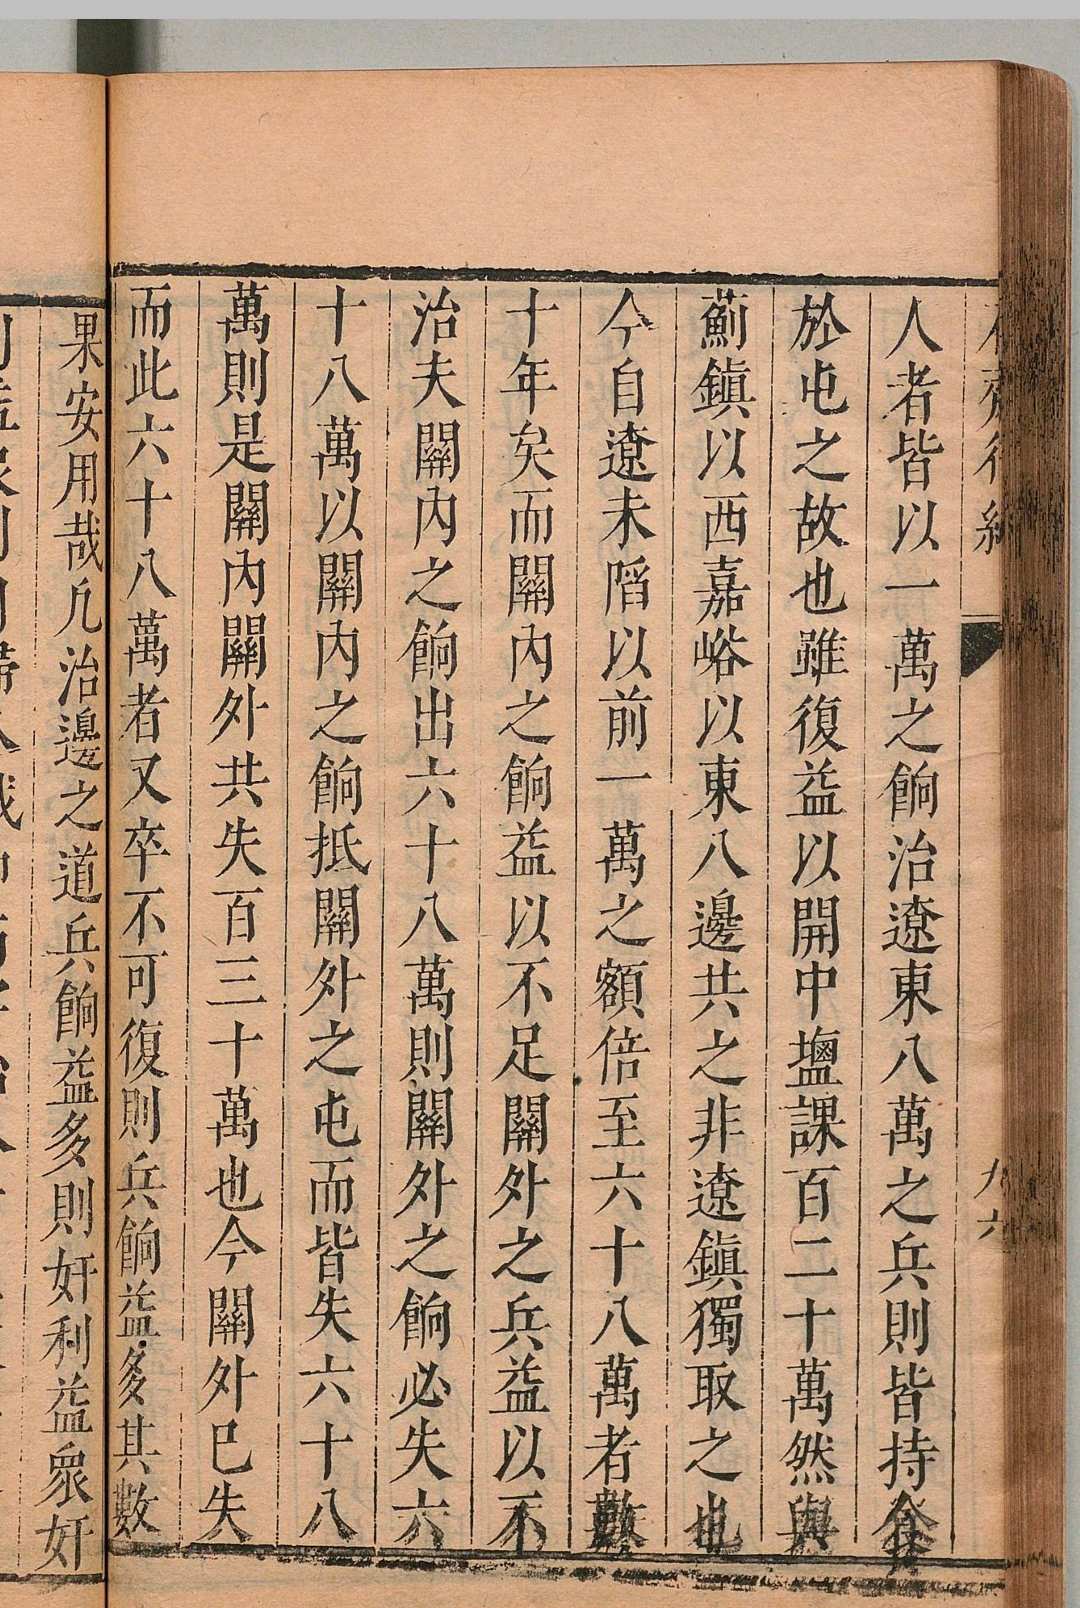 人者皆以一萬之餉治遼東八萬之兵則皆持食
於屯之故也雖復益以開中鹽課百二十萬然與
薊鎮以西嘉峪以東八邊共之非遼鎮獨取之也
今自遼未陷以前一萬之額倍至六十八萬者數
十年矣而關內之餉益以不足關外之兵益以不
治夫關內之餉出六十八萬則關外之餉必失六
十八萬以關內之餉抵關外之屯而皆失六十八
萬則是關內關外共失百三十萬也今關外已失
而此六十八萬者又卒不可復則兵餉益多其數
果安用哉凡治邊之道兵餉益多則奸利益眾奸
九六